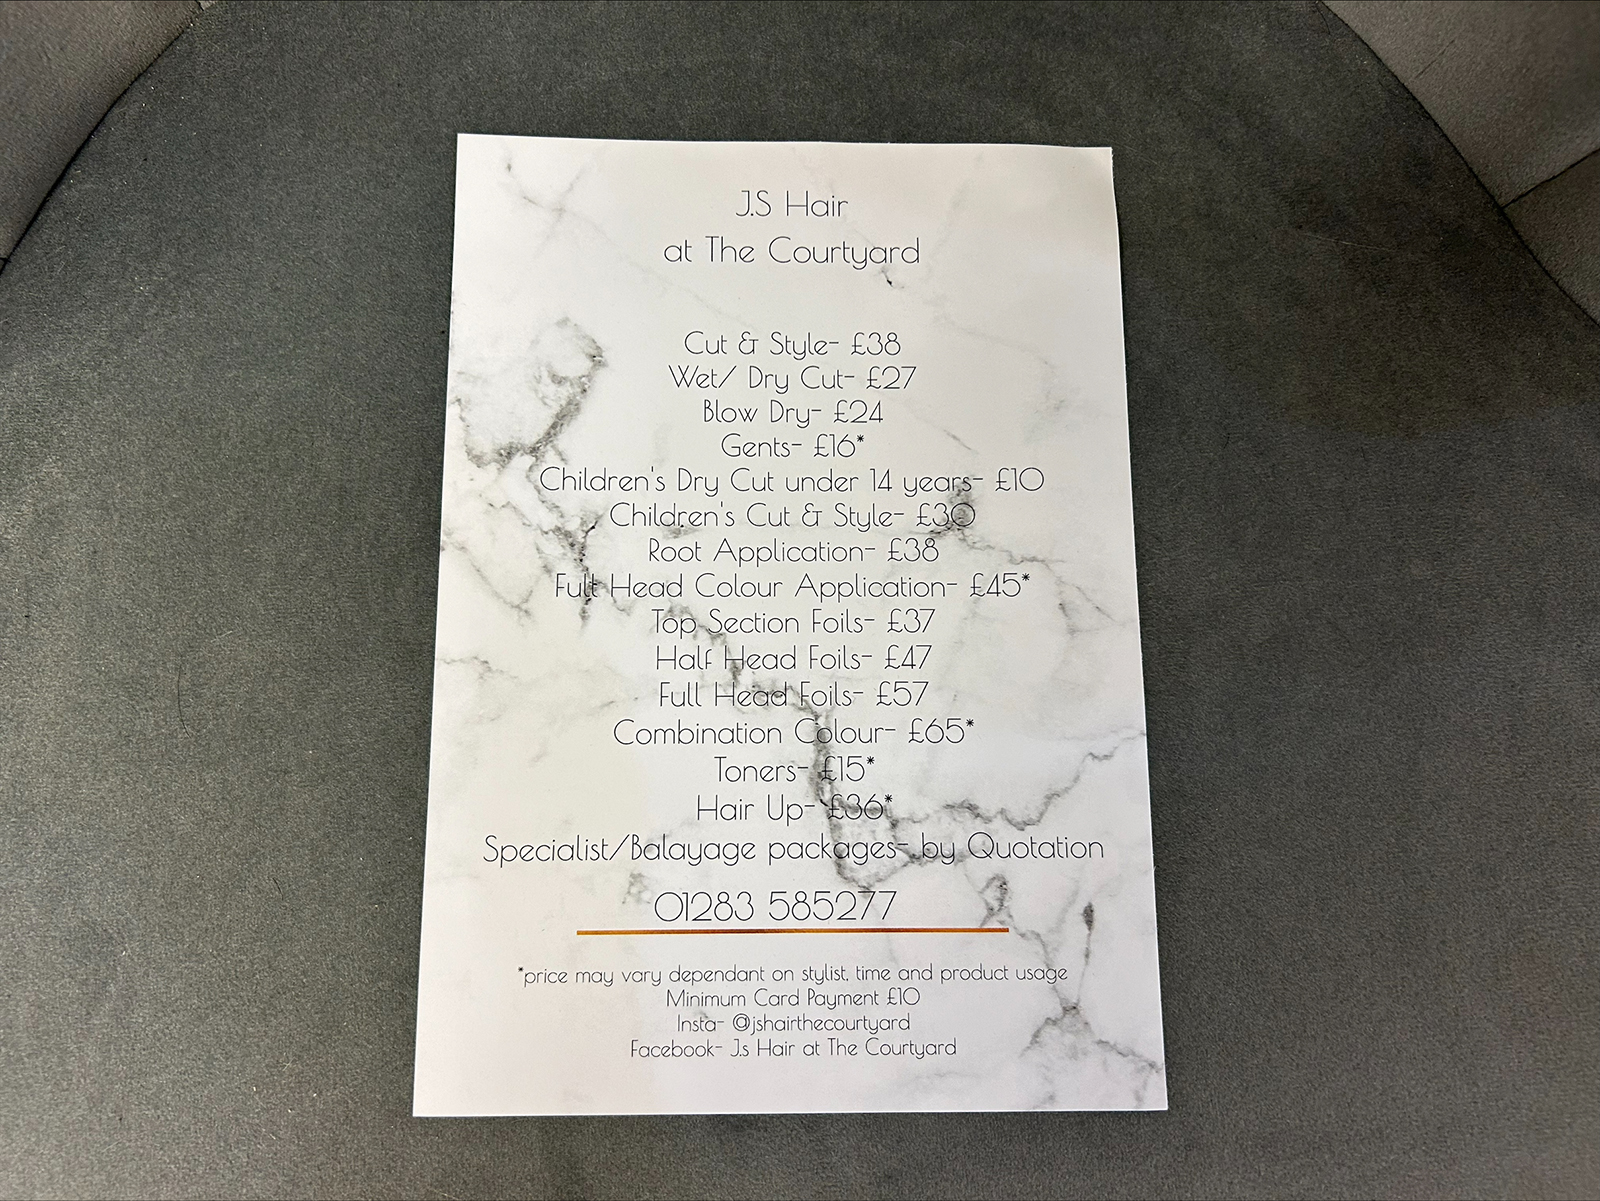 J.S Hair
at The Courtyard
Cut & Style- £38
Wet/ Dry Cut- £27
Blow Dry- £24
Gents- £16*
Children's Dry Cut under 14 years- £10
Children's Cut & Style- £30
Root Application- £38
Full Head Colour Application- £45*
Top Section Foils- £37
Half Head Foils- £47
Full Head Foils- £57
Combination Colour- £65*
Toners- £15*
Hair Up- £36*
Specialist/Balayage packages- by Quotation
01283 585277
*price may vary dependant on stylist, time and product usage
Minimum Card Payment £10
Insta- @jshairthecourtyard
Facebook- J.s Hair at The Courtyard